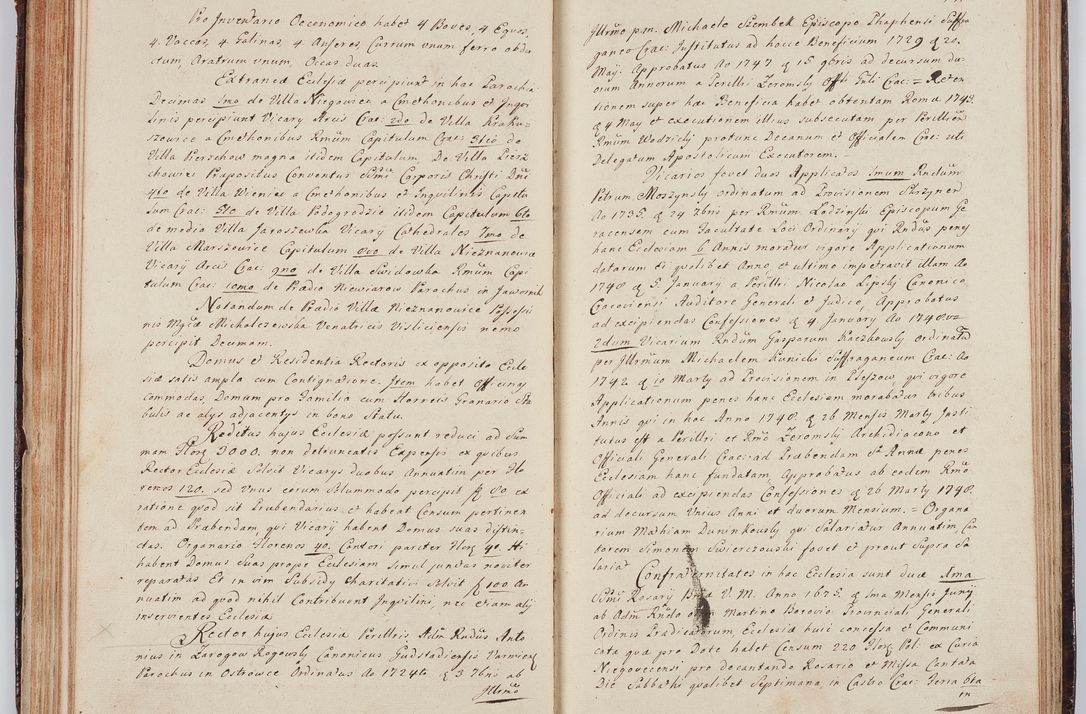 Pro Inventario Oeconomico habet 4 Boves, 4 Equos,
4. Vaccas, 4 Galinas, 4. Anseres, Currum unum ferro obdu
ctum, Aratrum unum, Occas duas.
Extranea Ecclesiæ percipiunt in hac Parochia
Decimas 1mo de Villa Niegowice a Cmethonibus et Inqvi
linis percipiunt Vicary Arcis Crac: 2do de Villa Kraku=
szowice a Cmethonibus Rmũm Capitulum Crac: 3tio de
Villa Pierzchow magna itidem Capitulum, De Villa Pierz
chowiec Præpositus Conventus Sṡmi Corporis Christi Dñi
4to de Villa Wieniec a Cmethonibus et Inquilinis Capitu
lum Crac: 5to de Villa Podogrodzie itidem Capitulum 6to
de media Villa Jaroszowka Vicary Cathedrales 7mo de
Villa Marszowice Capitulum 8vo de Villa Nieznanowice
Vicarÿ Arcis Crac: 9no de Villa Swidowka Rmũm Capi
tulum Crac: 10mo de Prædio Niewiarow Parochus in Jawornik
Notandum de Prædio Villæ Nieznanowice Possessio
nis Mgcæ Michalczewska Venatricis Visliciensis nemo
percipit Decimam.
Domus et Residentia Rectoris ex opposito Eccle
siæ satis ampla cum Contignatione. Item habet Officinas
commodas, Domum pro Familia cum Horreis Granario Sta
bulis ac alys adjacentys in bono Statu.
Reditus hujus Ecclesiæ possunt reduci ad Sum
mam Flor 3000. non detruncatis Expensis ex quibus
Rector Ecclesiæ Solvit Vicarys duobus Annuatim per Flo
renos 120. sed Unus eorum Solummodo percipit f 80 ex
ratione quod sit Præbendarius et habeat Censum pertinen
tem ad Præbendam qui Vicarÿ habent Domus suas distin=
ctas. Organario Florenos 40. Cantori pariter Flor 40. Hi
habent Domus Suas prope Ecclesiam Simul junctas noviter
reparatas Et in vim Subsidy Charitativi Solvit f 100 An
nuatim ad quod nihil Contribuunt Inquilini, nec etiam alÿ
inservientes Ecclesiæ
Rector hujus Ecclesiæ Perillris Adm Rndũs Anto
nius in Zarogow Rogowsky Canonicus Gudstadiensis Varmien
Parochus in Ostrowce Ordinatus Ao 1724to d 3 7bris ab
Jllrmo
Jllrmo p.m. Michaele Szembek Episcopo Phaphensi Suffra
ganeo Crac: Institutus ad hocce Beneficium 1729 d 20.
May. Approbatus Ao 1747 d 15 9bris ad decursum du=
orum Annorum a Perillri Zeromsky Offli Gnli Crac: = Reten
tionem super hæc Beneficia habet obtentam Romæ 1743.
d 4 May et executionem illius subsecutam per Perillrem
Rmũm Wodzicky protunc Decanum et Officialem Crac: uti
Delegatum Apostolicum Executorem. =
Vicarios fovet duos Applicatos 1mum Rndum
Petrum Moszynsky ordinatum ad Provisionem
Ao 1735. d 24 7bris per Rmũm Lodzinsky Episcopum Ge
racensem cum facultate Loci Ordinary qui Rndũs penes
hanc Ecclesiam 6 Annis moratur vigore Applicationum
datarum Ei quolibet Anno, et ultimo impetravit illam Ao
1748 d 5 January a Perillri Nicolao Lipsky Canonico
Cracoviensi Auditore Generali et Judice, Approbatus
ad excipiendas Confessiones d 4 January Ao 1748vo
2dum Vicarium Rndũm Gasparum Kaczkowsky ordinatũ
per Jllrmũm Michaelem Kunicki Suffraganeum Crac: Ao
1742. d 10 Marty ad Provisionem in Pleszow, qui vigore
Applicationum penes hanc Ecclesiam morabatur tribus
Annis qui in hoc Anno 1748. d 26 Mensis Marty Insti
tutus est a Perillri et Rmo Zeromsky Archidiacono et
Officiali Generali Crac: ad Præbendam St Annæ penes
Ecclesiam hanc fundatam, Approbatus ab eodem Rmo
Officiali ad excipiendas Confessiones d 26 Marty 1748.
ad decursum Unius Anni et duorum Mensium. = Organa
rium Mathiam Duninkowsky qui Salariatur Annuatim Can
torem Simonem Swierczowski fovet et prout Supra Sa
lariat
Confraternitates in hac Ecclesia sunt duæ 1ma
Sṡmi Rosary B. V. M. Anno 1675. d 1ma Mensis Juny
ab Adm Rndo Martino Borovio Provinciali Generali
Ordinis Prædicatorum Ecclesiæ huic concessa et Communi
cata quæ pro Dote habet Censum 220 Flor Pol: ex Curia
Niegovecensi pro decantando Rosario et Missa Cantata
Die Sabbathi quolibet Septimana in Castro Crac: Feria 6ta
in